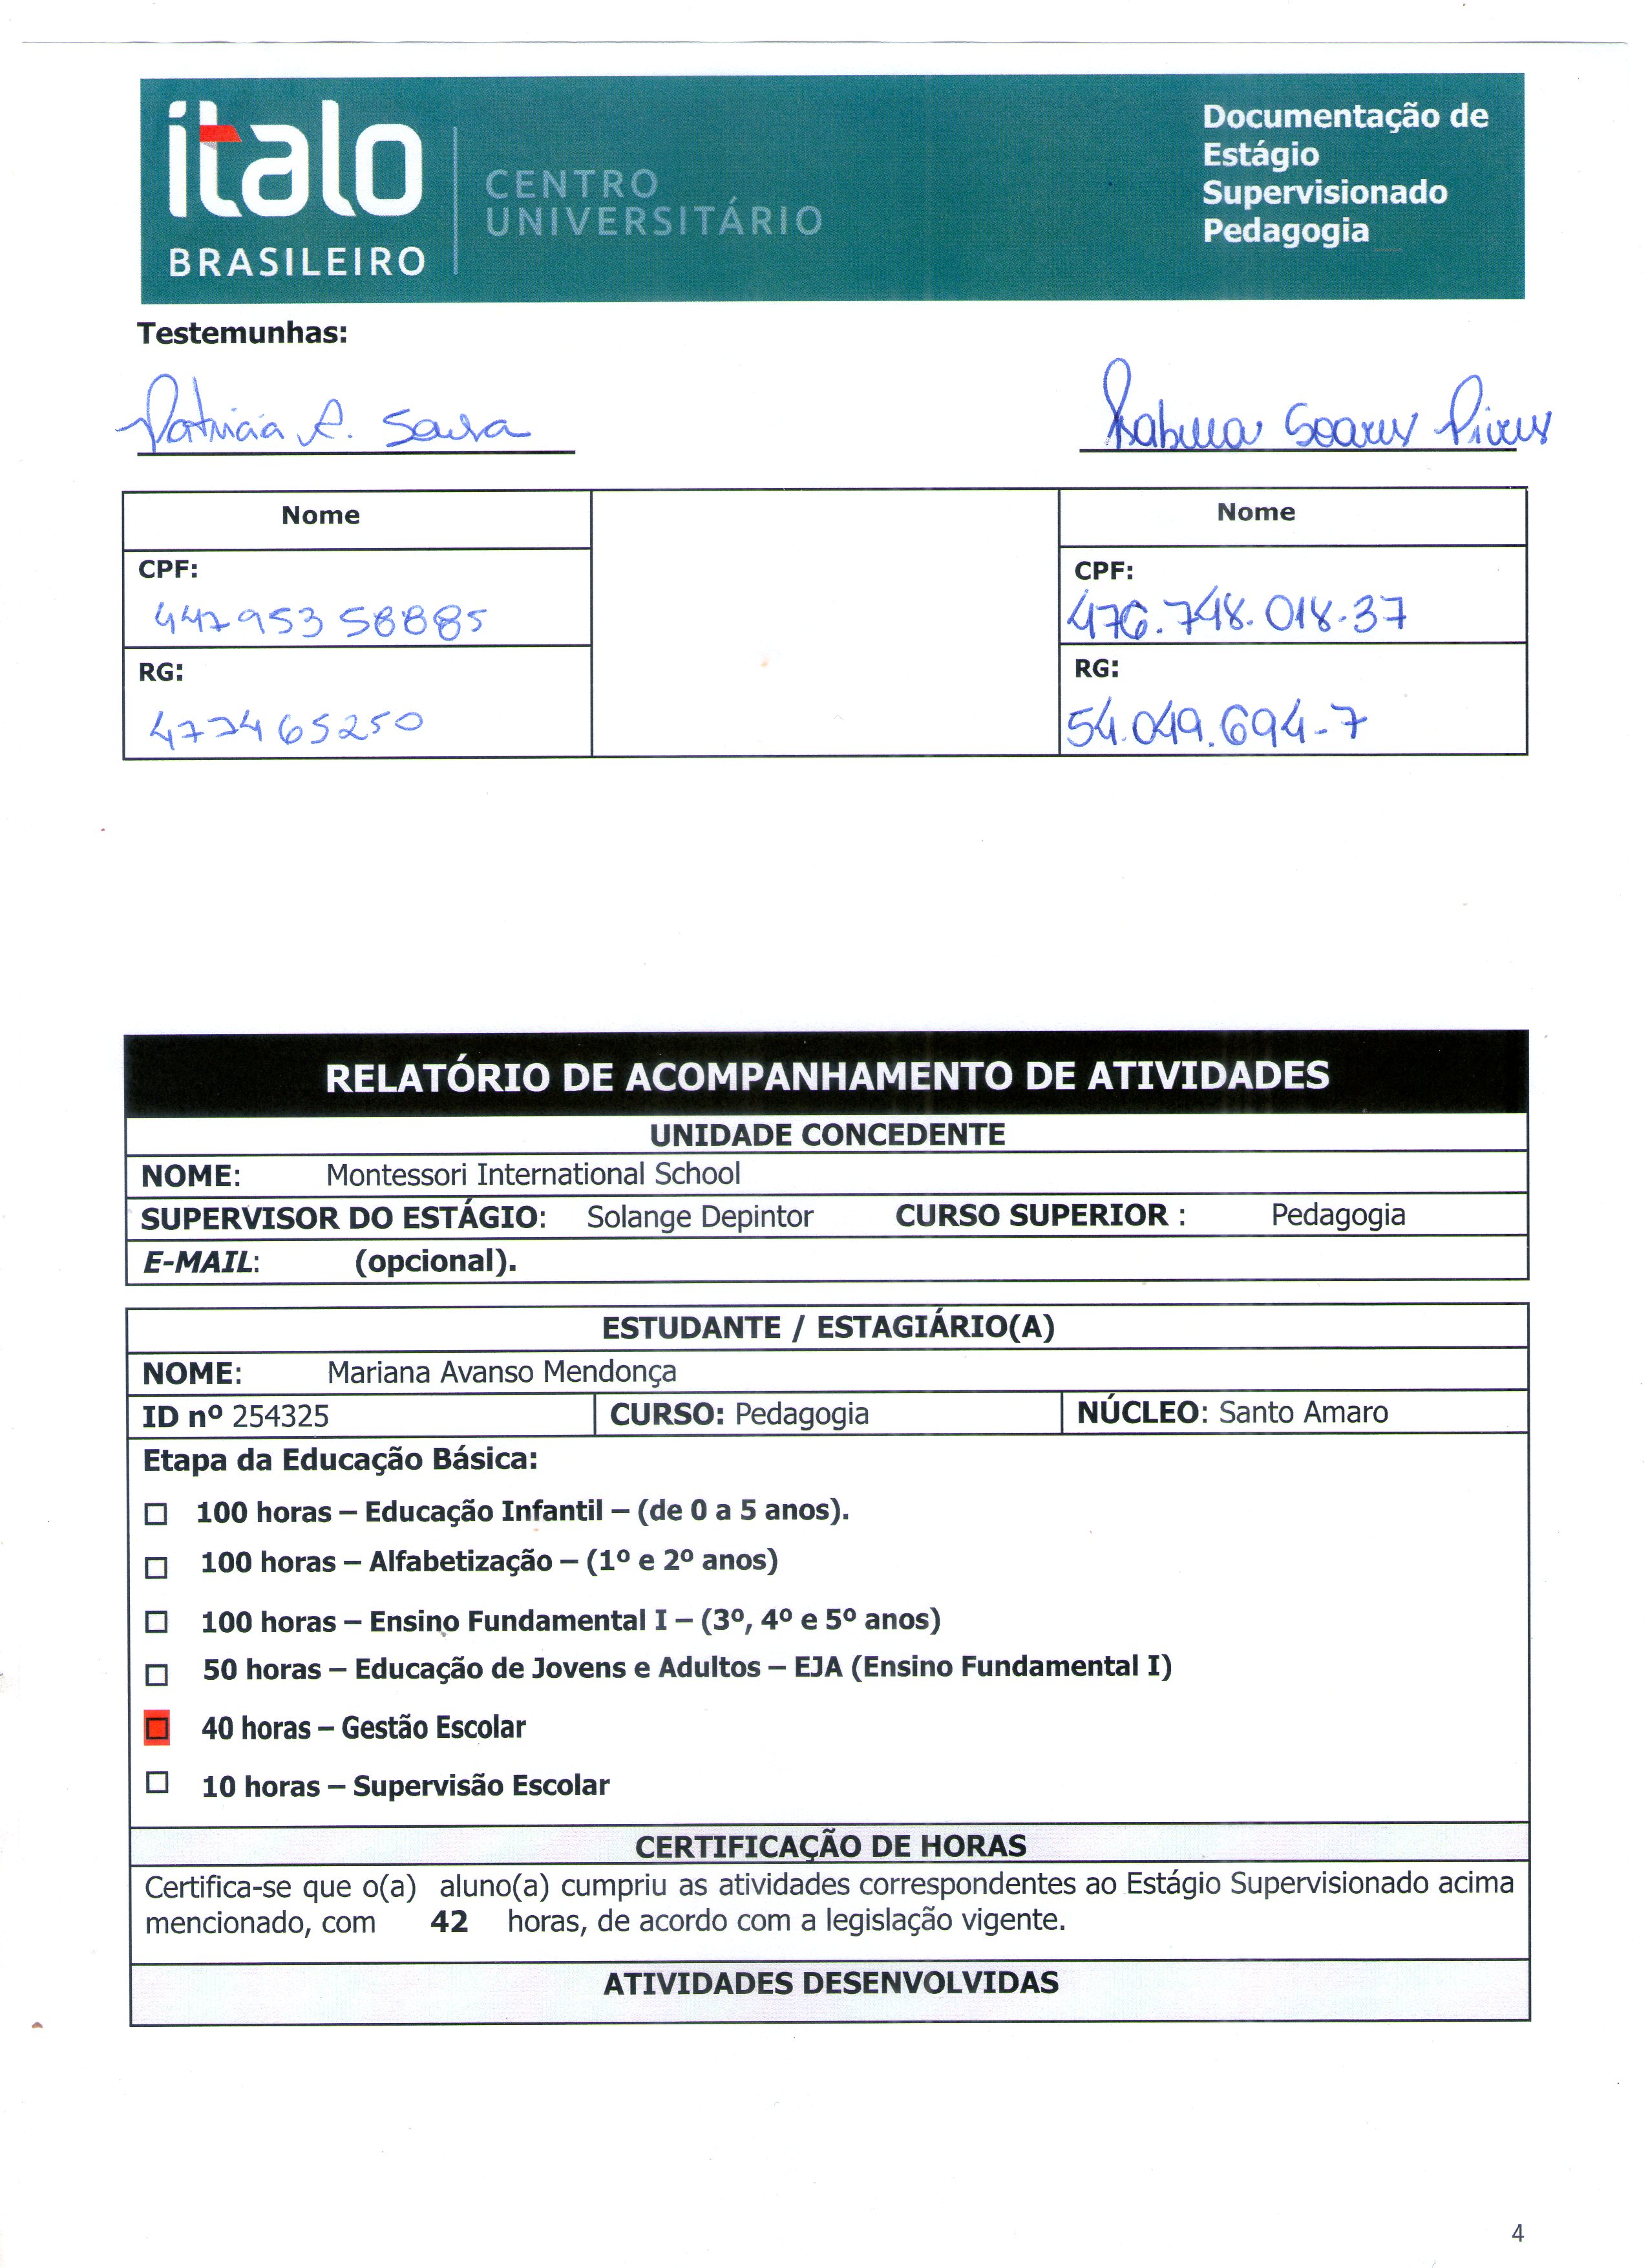 ítalo
BRASILEIRO
CENTRO
UNIVERSITÁRIO
Documentação de
Estágio
Supervisionado
Pedagogia
Testemunhas:
Patricia A. Sousa
Soares Pires
Nome
Nome
CPF:
CPF:
447953 58885
476.748.018-37
RG:
RG:
477465250
54.049.694-7
RELATÓRIO DE ACOMPANHAMENTO DE ATIVIDADES
UNIDADE CONCEDENTE
NOME: Montessori International School
SUPERVISOR DO ESTÁGIO: Solange Depintor CURSO SUPERIOR : Pedagogia
E-MAIL: (opcional).
ESTUDANTE / ESTAGIÁRIO(A)
NOME: Mariana Avanso Mendonça
ID nº 254325 CURSO: Pedagogia NÚCLEO: Santo Amaro
Etapa da Educação Básica:
100 horas – Educação Infantil – (de 0 a 5 anos).
100 horas – Alfabetização – (1º e 2º anos)
100 horas – Ensino Fundamental I – (3º, 4º e 5º anos)
50 horas – Educação de Jovens e Adultos – EJA (Ensino Fundamental I)
40 horas – Gestão Escolar
10 horas – Supervisão Escolar
CERTIFICAÇÃO DE HORAS
Certifica-se que o(a) aluno(a) cumpriu as atividades correspondentes ao Estágio Supervisionado acima
mencionado, com 42 horas, de acordo com a legislação vigente.
ATIVIDADES DESENVOLVIDAS
4